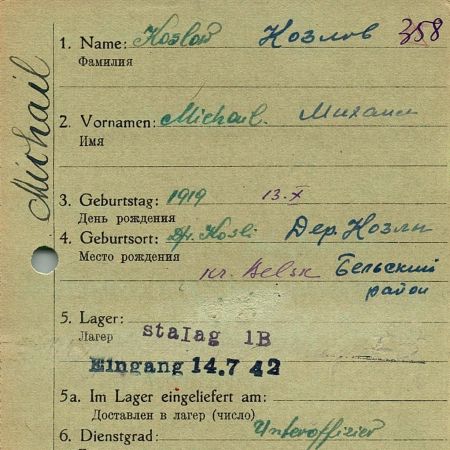 Michail
1. Name: Koslow Козлов 358
Фамилия
2. Vornamen: Michail. Михаил
Имя
3. Geburtstag: 1919 13.X
День рождения
4. Geburtsort: Dr. Kosli Дер. Козли
Место рождения
kr. Belsk Бельский
район
5. Lager: stalag 1B
Лагер
Eingang 14.7 42
5a. Im Lager eingeliefert am:
Доставлен в лагер (число)
6. Dienstgrad: Unteroffizier